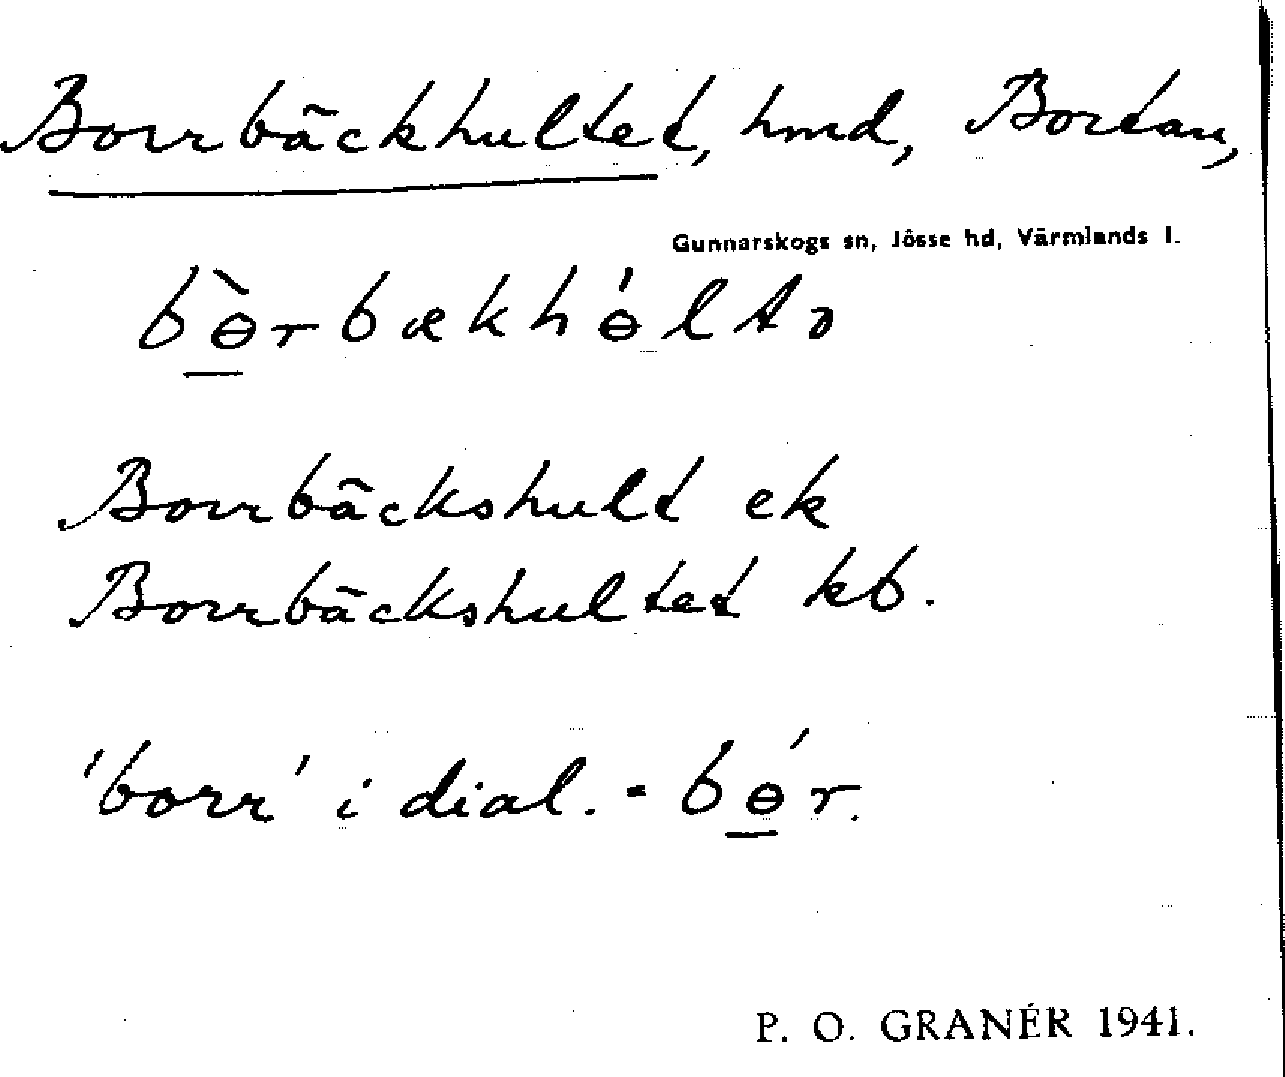 Borrbäckhultet, hmd, Bortan,
Gunnarskogs sn, Jösse hd, Värmlands l.
bɵ̀rbækhɵ́ltə
Borrbäckshult ek
Borrbäckshultet kb.
'borr' i dial. = bɵ́r.
P. O. GRANÉR 1941.